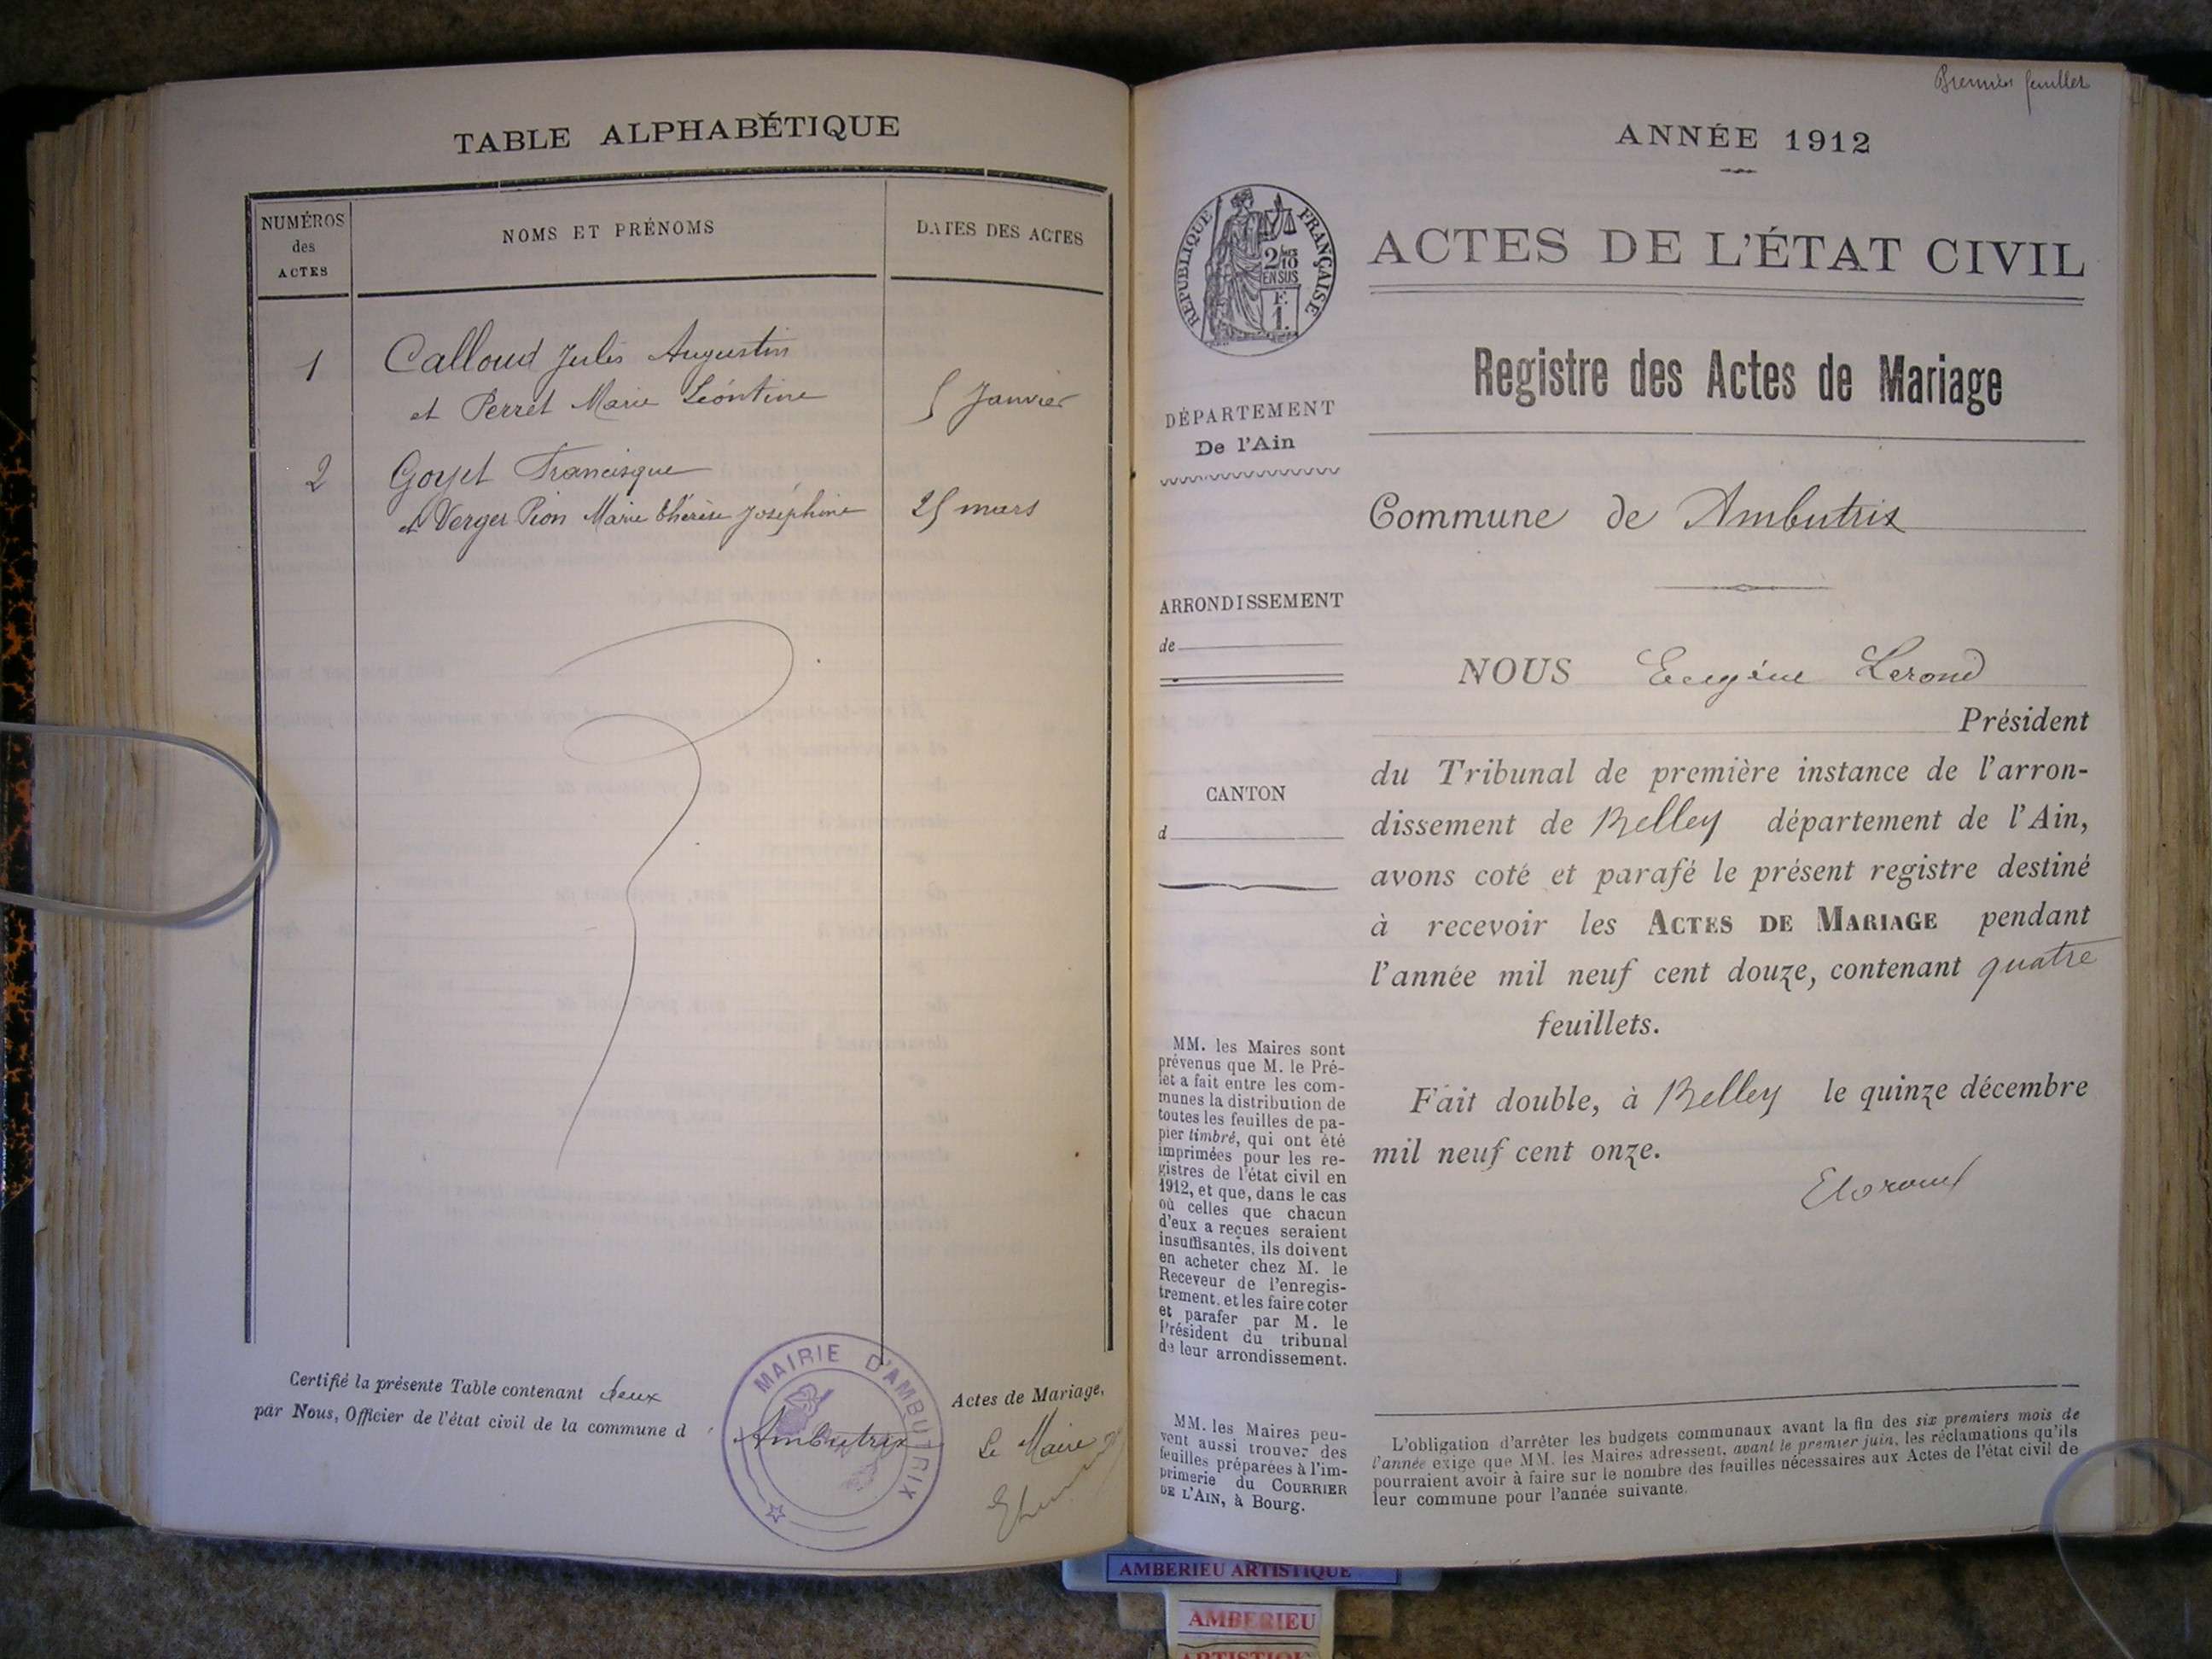 TABLE ALPHABÉTIQUE
NUMÉROS
des
ACTES
NOMS ET PRÉNOMS
DATES DES ACTES
1
Calloud Jules Augustin
et Perret Marie Léontine
5 Janvier
2
Goyet Francisque
et Verger Pion Marie Thérèse Joséphine
25 mars
Certifié la présente Table contenant deux
Actes de Mariage,
par Nous, Officier de l'état civil de la commune d
Ambutrix
Le Maire
MAIRIE D'AMBUTRIX
Premier feuillet
ANNÉE 1912
RÉPUBLIQUE FRANÇAISE
2/10
EN SUS
F.
1.
ACTES DE L'ÉTAT CIVIL
Registre des Actes de Mariage
DÉPARTEMENT
De l'Ain
Commune de Ambutrix
ARRONDISSEMENT
de
CANTON
d
NOUS Eugène Lerond
Président
du Tribunal de première instance de l'arron-
dissement de Belley département de l'Ain,
avons coté et parafé le présent registre destiné
à recevoir les ACTES DE MARIAGE pendant
l'année mil neuf cent douze, contenant quatre
feuillets.
Fait double, à Belley le quinze décembre
mil neuf cent onze.
ELerond
MM. les Maires sont
prévenus que M. le Pré-
fet a fait entre les com-
munes la distribution de
toutes les feuilles de pa-
pier timbré, qui ont été
imprimées pour les re-
gistres de l'état civil en
1912, et que, dans le cas
où celles que chacun
d'eux a reçues seraient
insuffisantes, ils doivent
en acheter chez M. le
Receveur de l'enregis-
trement, et les faire coter
et parafer par M. le
Président du tribunal
de leur arrondissement.
MM. les Maires peu-
vent aussi trouver des
feuilles préparées à l'im-
primerie du COURRIER
DE L'AIN, à Bourg.
L'obligation d'arrêter les budgets communaux avant la fin des six premiers mois de
l'année exige que MM. les Maires adressent, avant le premier juin, les réclamations qu'ils
pourraient avoir à faire sur le nombre des feuilles nécessaires aux Actes de l'état civil de
leur commune pour l'année suivante.
AMBERIEU ARTISTIQUE
AMBERIEU
ARTISTIQUE